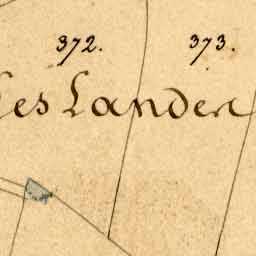 372. 373.
es Landen